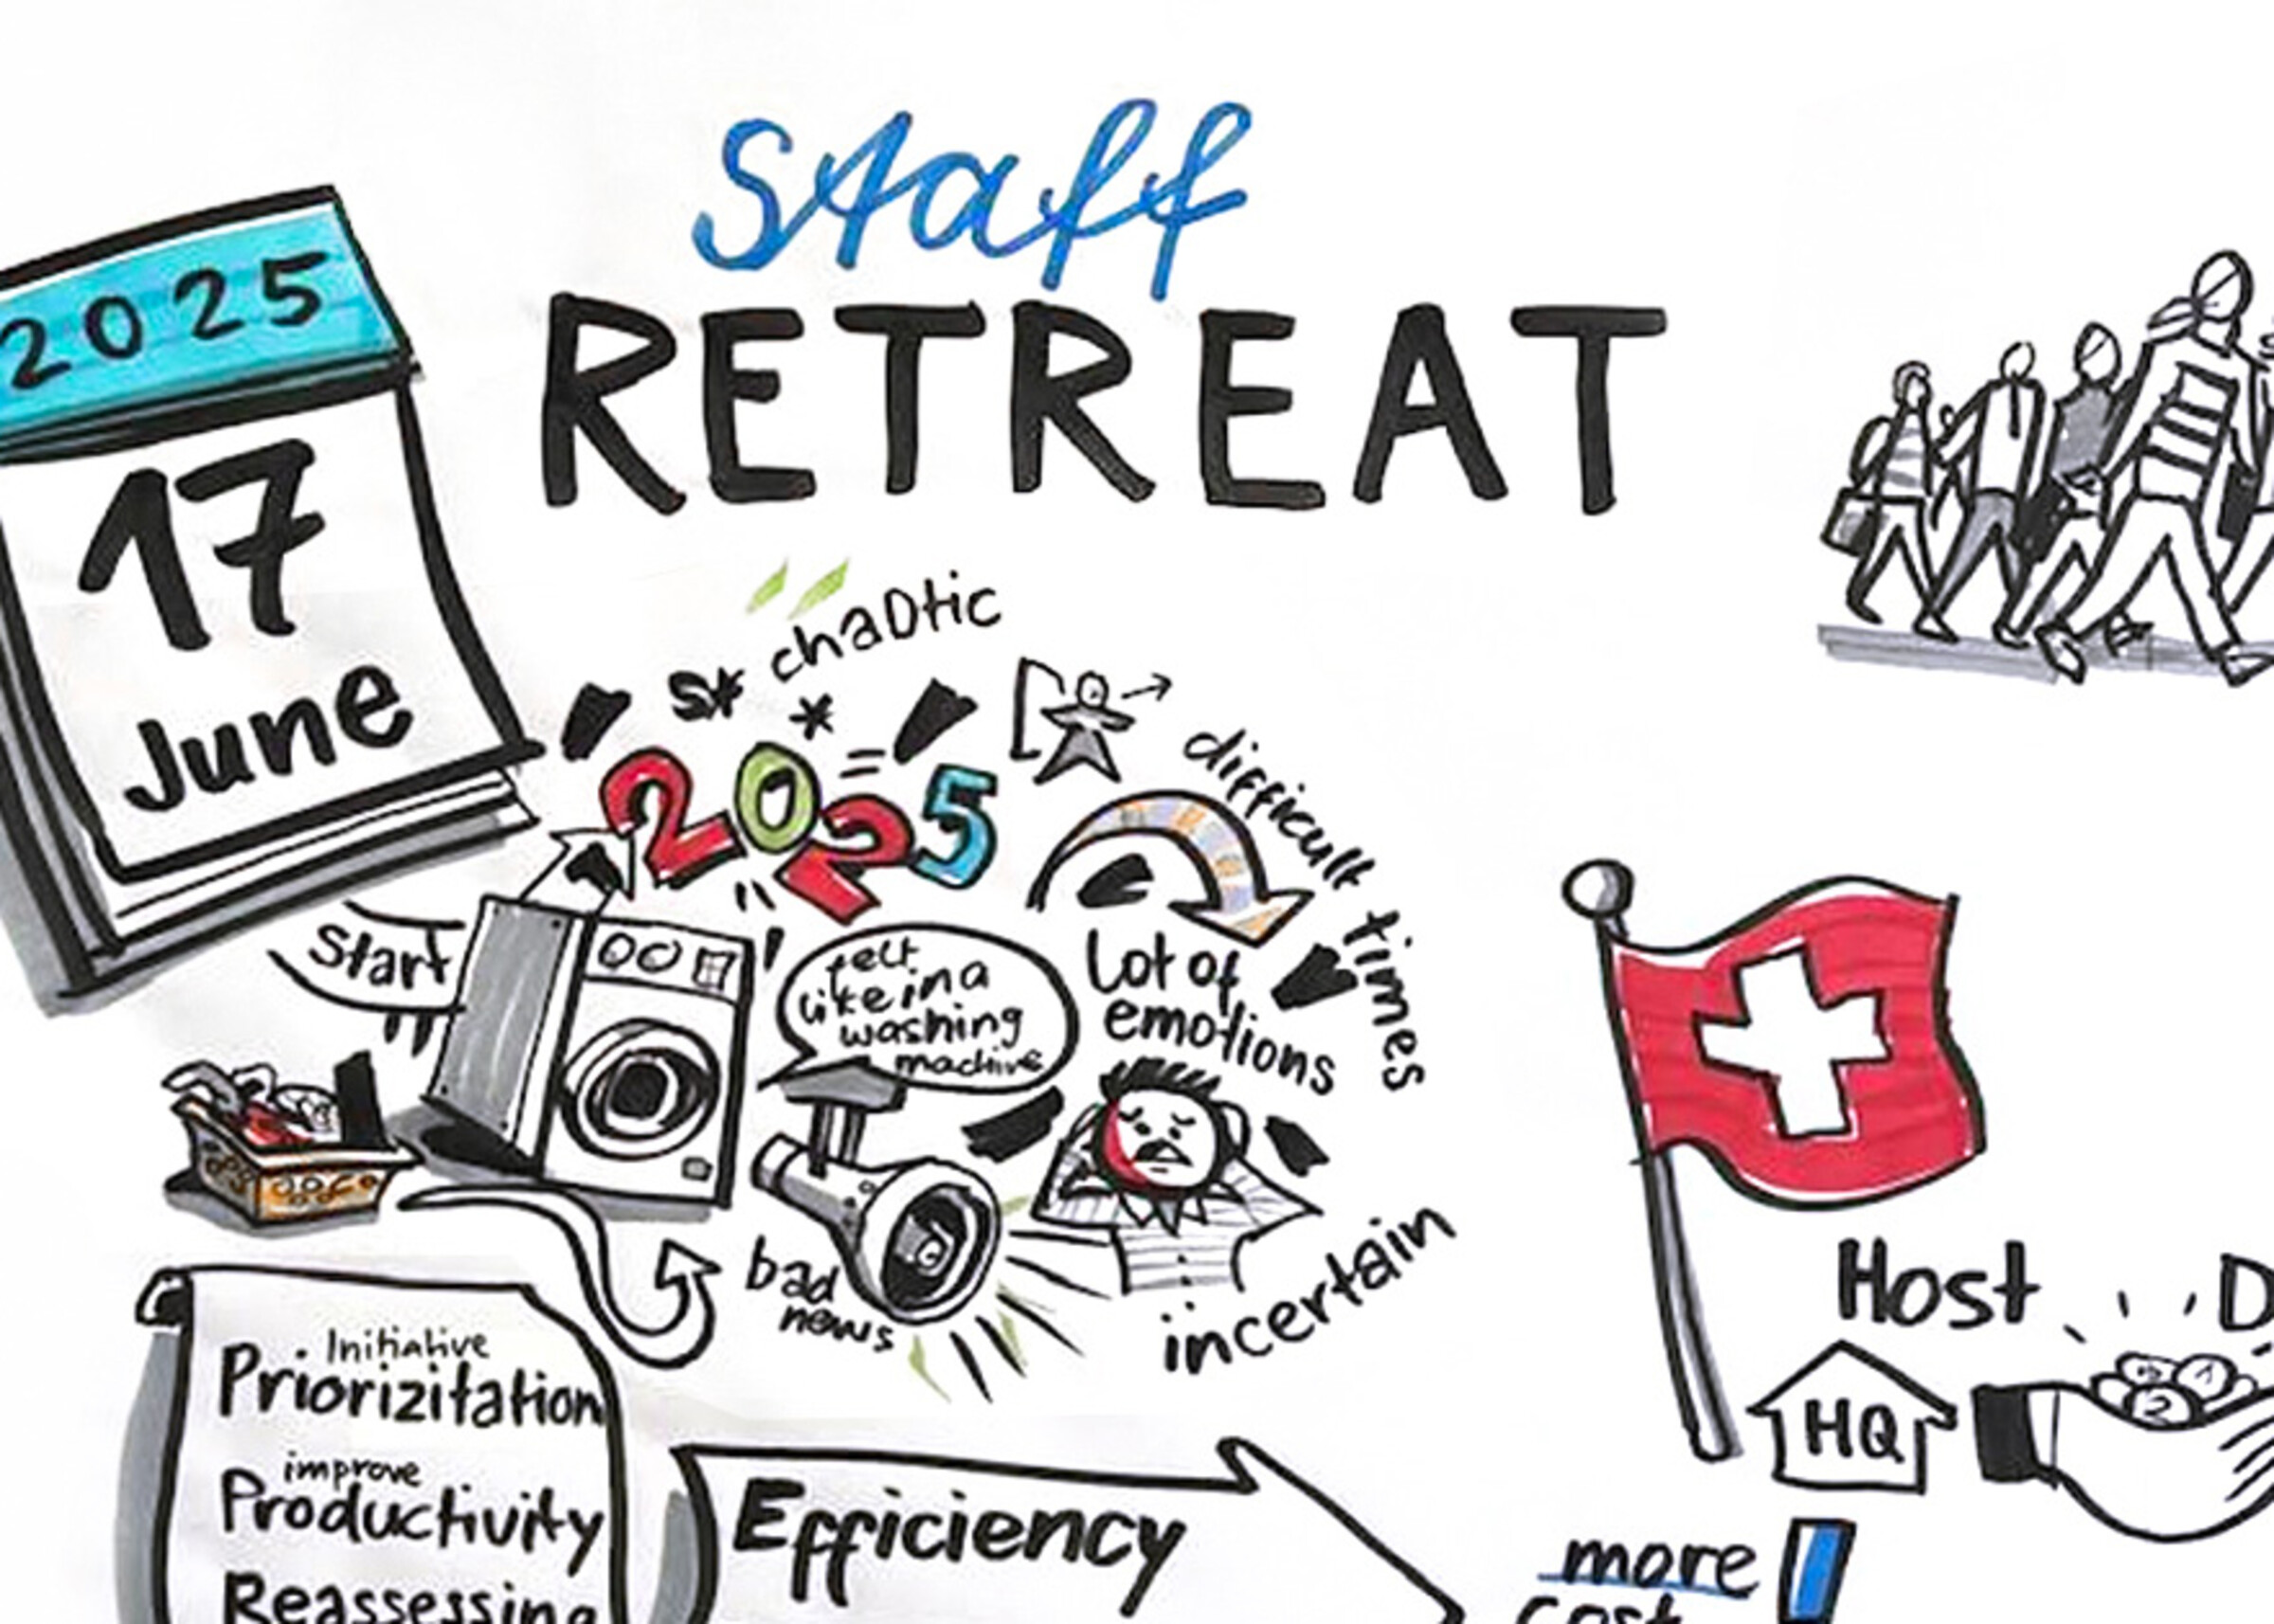 Staff
RETREAT
2025
17
June
chaotic
S*
*
2025
difficult times
start
felt
like in a
washing
machine
Lot of
emotions
bad
news
incertain
Initiative
Priorizitation
improve
Productivity
Reassessing
Efficiency
Host
D
HQ
2
more
cost